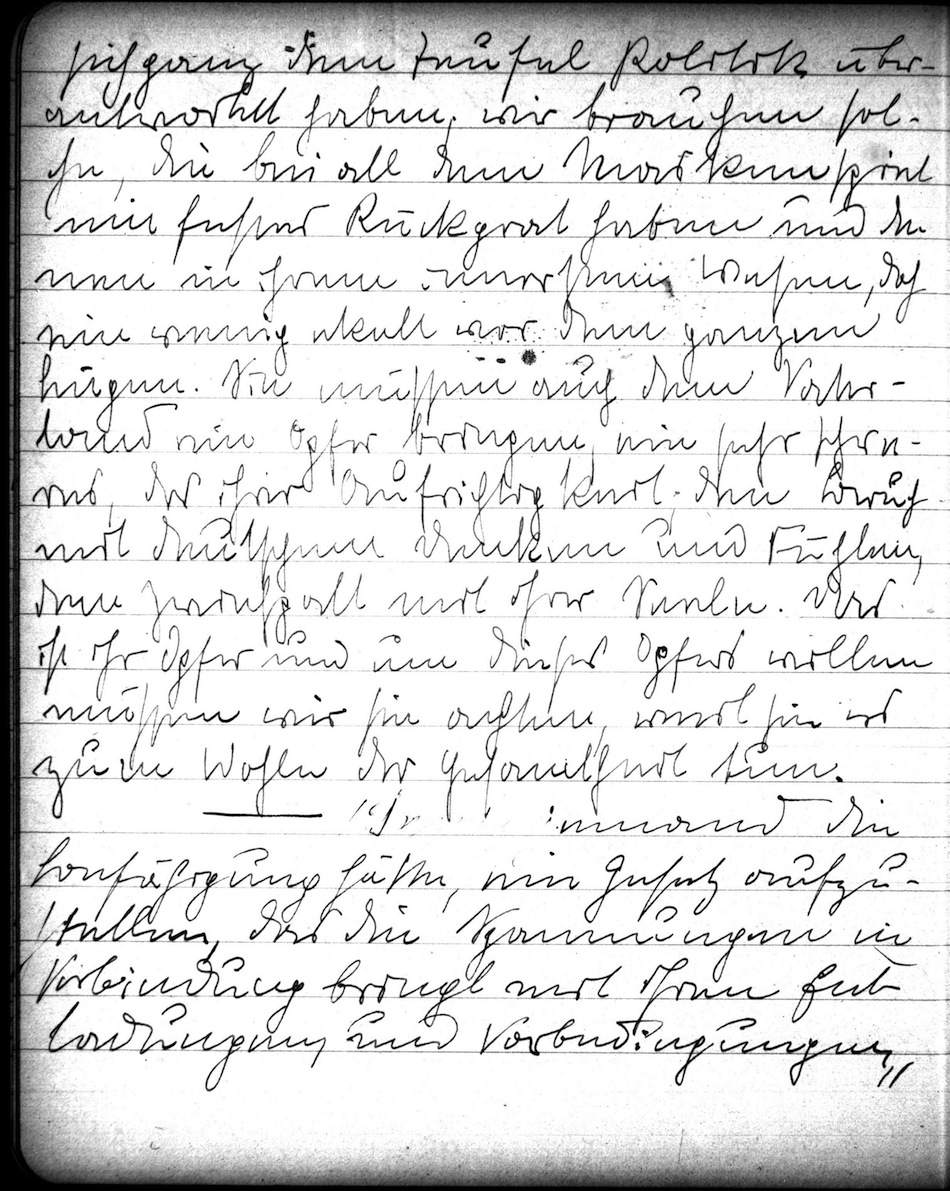 sich ganz dem Teufel Politik über-
antwortet haben, wir brauchen sol-
che, die bei all dem Maskenspiel
ein festes Rückgrat haben und de
nen in ihrem innersten Wesen, doch
ein wenig ekelt vor dem ganzen
Lügen. Sie müssen auch dem Vater-
land ein Opfer bringen, ein sehr schwe-
res, das ihrer Aufrichtigkeit, den Bruch
mit deutschem Denken und Fühlen,
dem Zwiespalt mit ihrer Seele. Das
ist ihr Opfer und um dieses Opfers willen
müssen wir sie achten, weil sie es
zum Wohle der Gesamtheit tun.
jemand die
Befähigung hätte, ein Gesetz aufzu-
stellen, das die Spannungen in
Verbindung bringt mit ihren Ent
ladungen und Vorbedingungen,